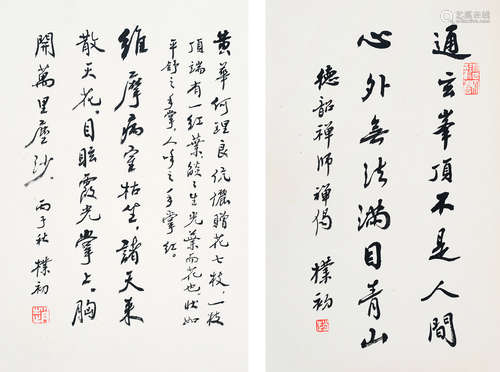 通玄峰頂不是人間
心外無法滿目青山
德韶禪師禪偈 樸初
黄華何理良伉儷贈花七枝，一枝
頂端有一紅葉，燄燄生光，葉而花也，狀如
平舒之手掌，人呼之手掌紅。
維摩病室枯坐，諸天來
散天花。目眩霞光掌上，胸
開萬里塵沙。丙子秋 樸初